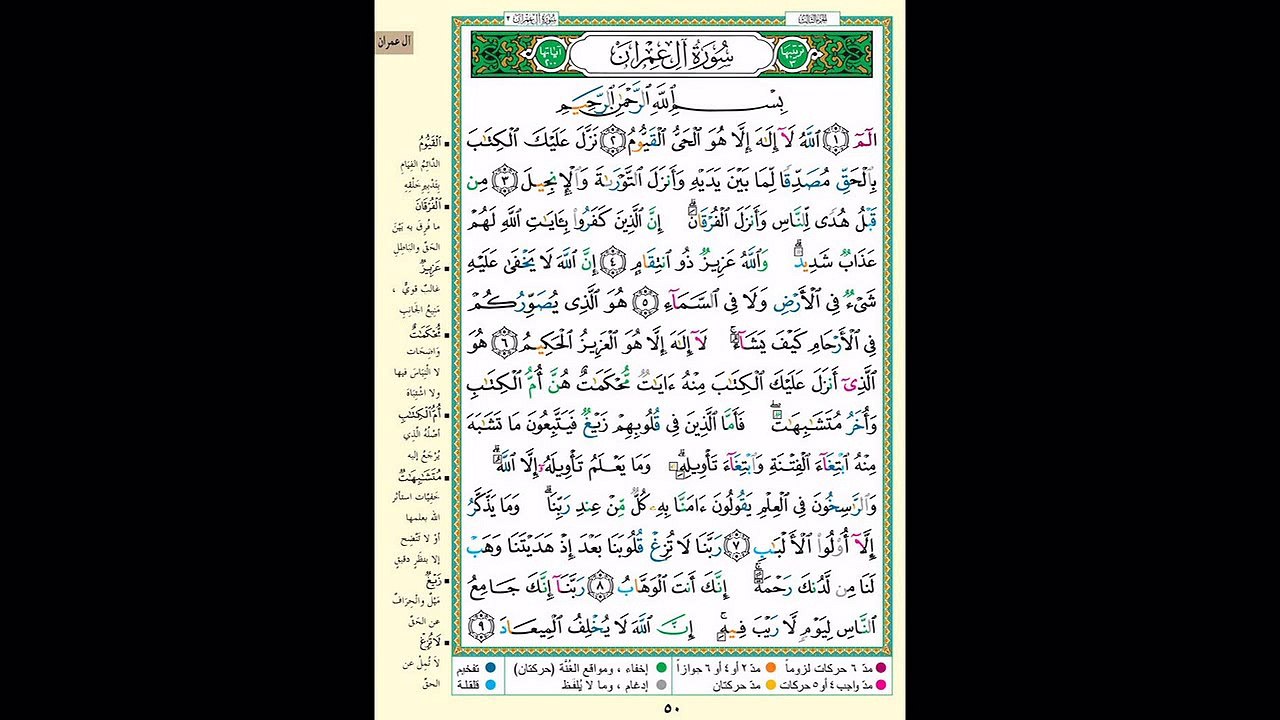 الجزء الثالث
سورة آل عمران ٣
آل عمران
ترتيبها ٣
سُورَةُ آلِ عِمْرَانَ
آياتها ٢٠٠
بِسْمِ اللَّهِ الرَّحْمَٰنِ الرَّحِيمِ
الٓمٓ ١ اللَّهُ لَآ إِلَٰهَ إِلَّا هُوَ الْحَيُّ الْقَيُّومُ ٢ نَزَّلَ عَلَيْكَ الْكِتَٰبَ
بِالْحَقِّ مُصَدِّقًا لِّمَا بَيْنَ يَدَيْهِ وَأَنزَلَ التَّوْرَىٰةَ وَالْإِنجِيلَ ٣ مِن
قَبْلُ هُدًى لِّلنَّاسِ وَأَنزَلَ الْفُرْقَانَ إِنَّ الَّذِينَ كَفَرُوا بِـَٔايَٰتِ اللَّهِ لَهُمْ
عَذَابٌ شَدِيدٌ وَاللَّهُ عَزِيزٌ ذُو انتِقَامٍ ٤ إِنَّ اللَّهَ لَا يَخْفَىٰ عَلَيْهِ
شَىْءٌ فِي الْأَرْضِ وَلَا فِي السَّمَآءِ ٥ هُوَ الَّذِي يُصَوِّرُكُمْ
فِي الْأَرْحَامِ كَيْفَ يَشَآءُ لَآ إِلَٰهَ إِلَّا هُوَ الْعَزِيزُ الْحَكِيمُ ٦ هُوَ
الَّذِيٓ أَنزَلَ عَلَيْكَ الْكِتَٰبَ مِنْهُ ءَايَٰتٌ مُّحْكَمَٰتٌ هُنَّ أُمُّ الْكِتَٰبِ
وَأُخَرُ مُتَشَٰبِهَٰتٌ فَأَمَّا الَّذِينَ فِي قُلُوبِهِمْ زَيْغٌ فَيَتَّبِعُونَ مَا تَشَٰبَهَ
مِنْهُ ابْتِغَآءَ الْفِتْنَةِ وَابْتِغَآءَ تَأْوِيلِهِ وَمَا يَعْلَمُ تَأْوِيلَهُٓ إِلَّا اللَّهُ
وَالرَّٰسِخُونَ فِي الْعِلْمِ يَقُولُونَ ءَامَنَّا بِهِ كُلٌّ مِّنْ عِندِ رَبِّنَا وَمَا يَذَّكَّرُ
إِلَّآ أُولُوا الْأَلْبَٰبِ ٧ رَبَّنَا لَا تُزِغْ قُلُوبَنَا بَعْدَ إِذْ هَدَيْتَنَا وَهَبْ
لَنَا مِن لَّدُنكَ رَحْمَةً إِنَّكَ أَنتَ الْوَهَّابُ ٨ رَبَّنَآ إِنَّكَ جَامِعُ
النَّاسِ لِيَوْمٍ لَّا رَيْبَ فِيهِ إِنَّ اللَّهَ لَا يُخْلِفُ الْمِيعَادَ ٩
الْقَيُّومُ
الدّائِمُ القِيَامِ
بِتَدْبِيرِ خَلْقِهِ
الْفُرْقَانَ
ما فُرِقَ به بَيْنَ
الحَقّ والباطِلِ
عَزِيزٌ
غالبٌ قويٌّ ،
مَنِيعُ الجَانِبِ
مُّحْكَمَٰتٌ
وَاضِحَات
لا الْتِبَاسَ فيها
ولا اشْتِبَاهَ
أُمُّ الْكِتَٰبِ
أصْلُهُ الّذي
يُرْجَعُ إليه
مُتَشَٰبِهَٰتٌ
خَفِيّات استأثر
الله بعلمها
أوْ لا تَتَّضِح
إلا بنظَرٍ دقيقٍ
زَيْغٌ
مَيْلٌ وانْحِرَافٌ
عن الحَقّ
لَا تُزِغْ
لَا تُمِلْ عن
الحقّ
مدّ ٦ حركات لزوماً
مدّ ٢ أو ٤ أو ٦ جوازاً
إخفاء ، ومواقع الغُنَّة (حركتان)
تفخيم
مدّ واجب ٤ أو ٥ حركات
مدّ حركتان
إدغام ، وما لا يُلفَظ
قلقلة
٥٠